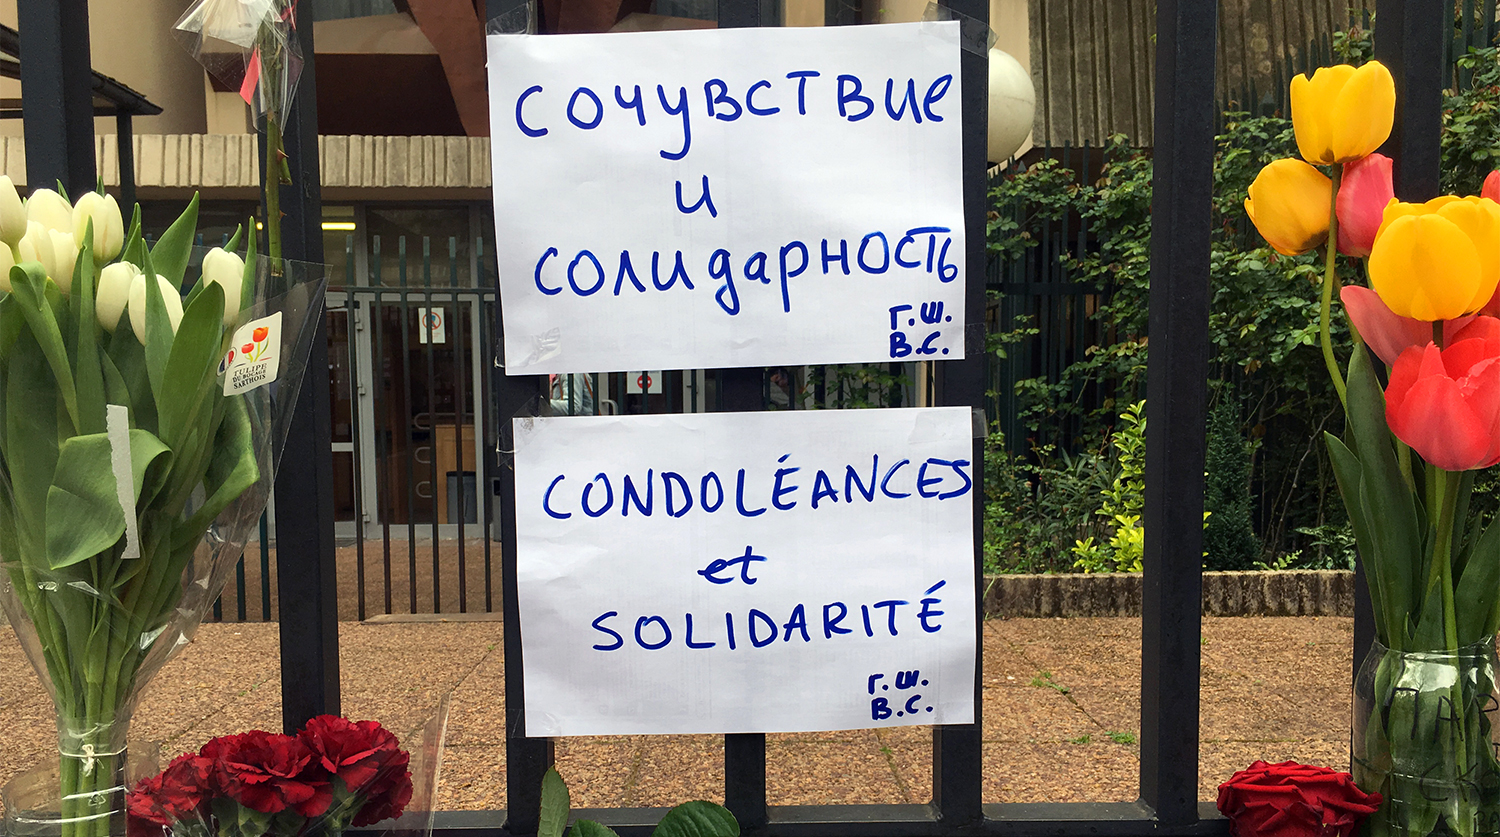 Сочувствие
и
солидарность
Г.Ш.
В.С.
CONDOLÉANCES
et
SOLIDARITÉ
Г.Ш.
В.С.
TULIPE
DU BOCAGE
SARTHOIS